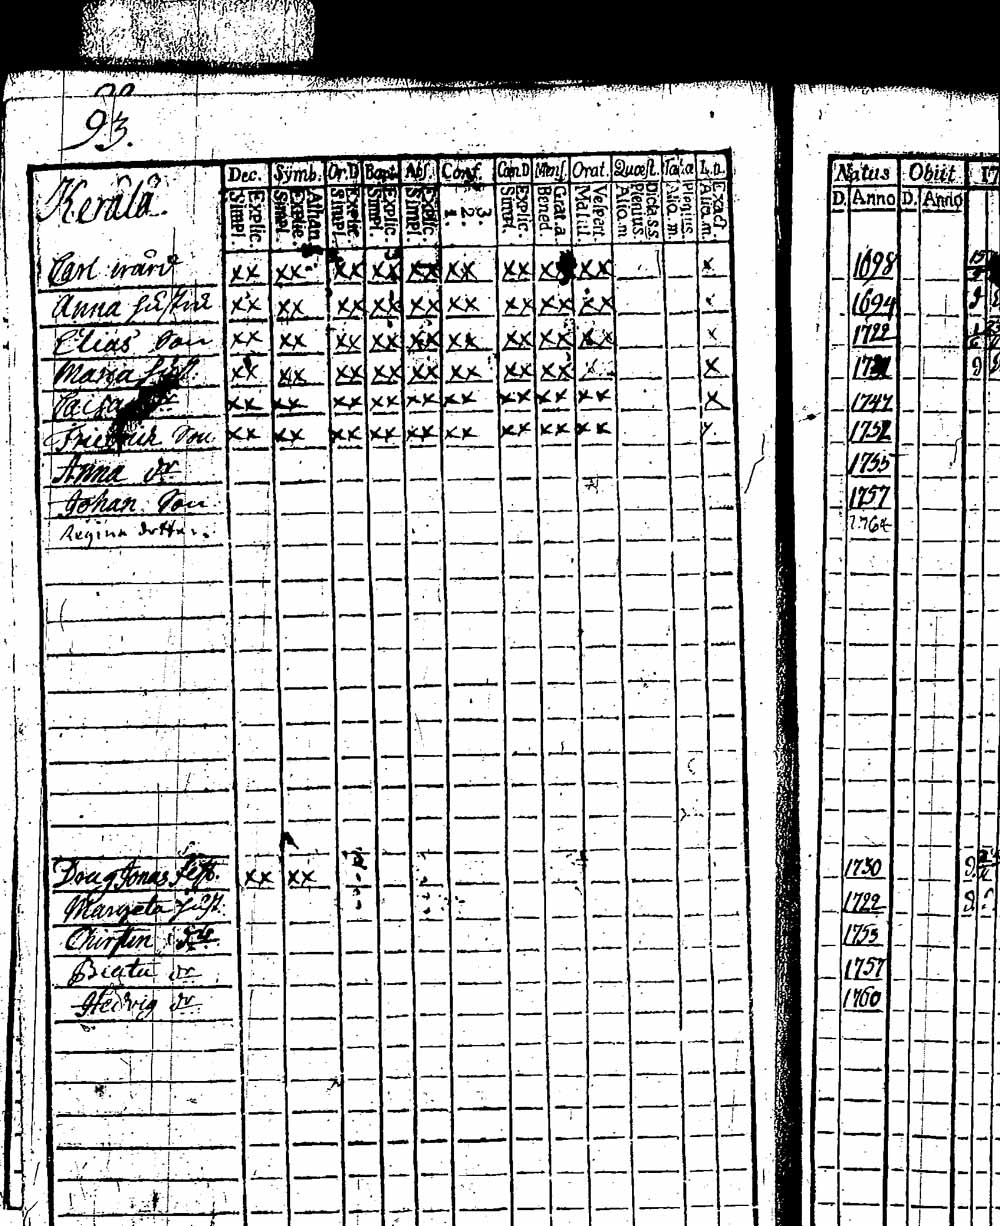 93.
Dec. Symb. Or.D Bapt. Abs. Conf. Cœn.D Mens. Orat. Quœst. L.D.
Natus Obiit 17
D. Anno D. Anno
Kerälä.
Simpl. Explic.
Simpl. Explic. Athan
Simpl. Explic.
Simpl. Explic.
Simpl. Explic.
1. 2. 3.
Simpl. Explic.
Bened. Grat.a
Matut. Vespert.
Aliq.m Plenius. Dicta SS
Aliq.m Plenius.
Aliq.m. Exact
Carl xx xx xx xx xx xx xx xx xx x 1698
Anna hustru xx xx xx xx xx xx xx xx xx x 1694
Elias Son xx xx xx xx xx xx xx xx xx x 1722
Maria hust. xx xx xx xx xx xx xx xx x
xx xx xx xx xx xx xx xx xx x 1747
Friedrich Son xx xx xx xx xx xx xx xx xx
Anna dr 1755
Johan Son 1757
Regina dotter. 1764
Jonas xx xx 1730
Margeta hust. 1722
Chirstin dr 1755
Beata dr 1757
Hedvig dr 1760